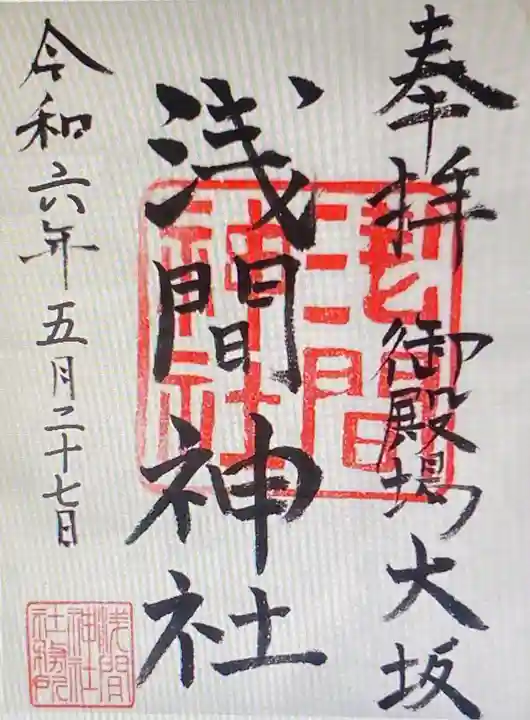 奉拝 御殿場大坂
浅間神社
令和六年五月二十七日
浅間
神社
浅間
神社
社務所